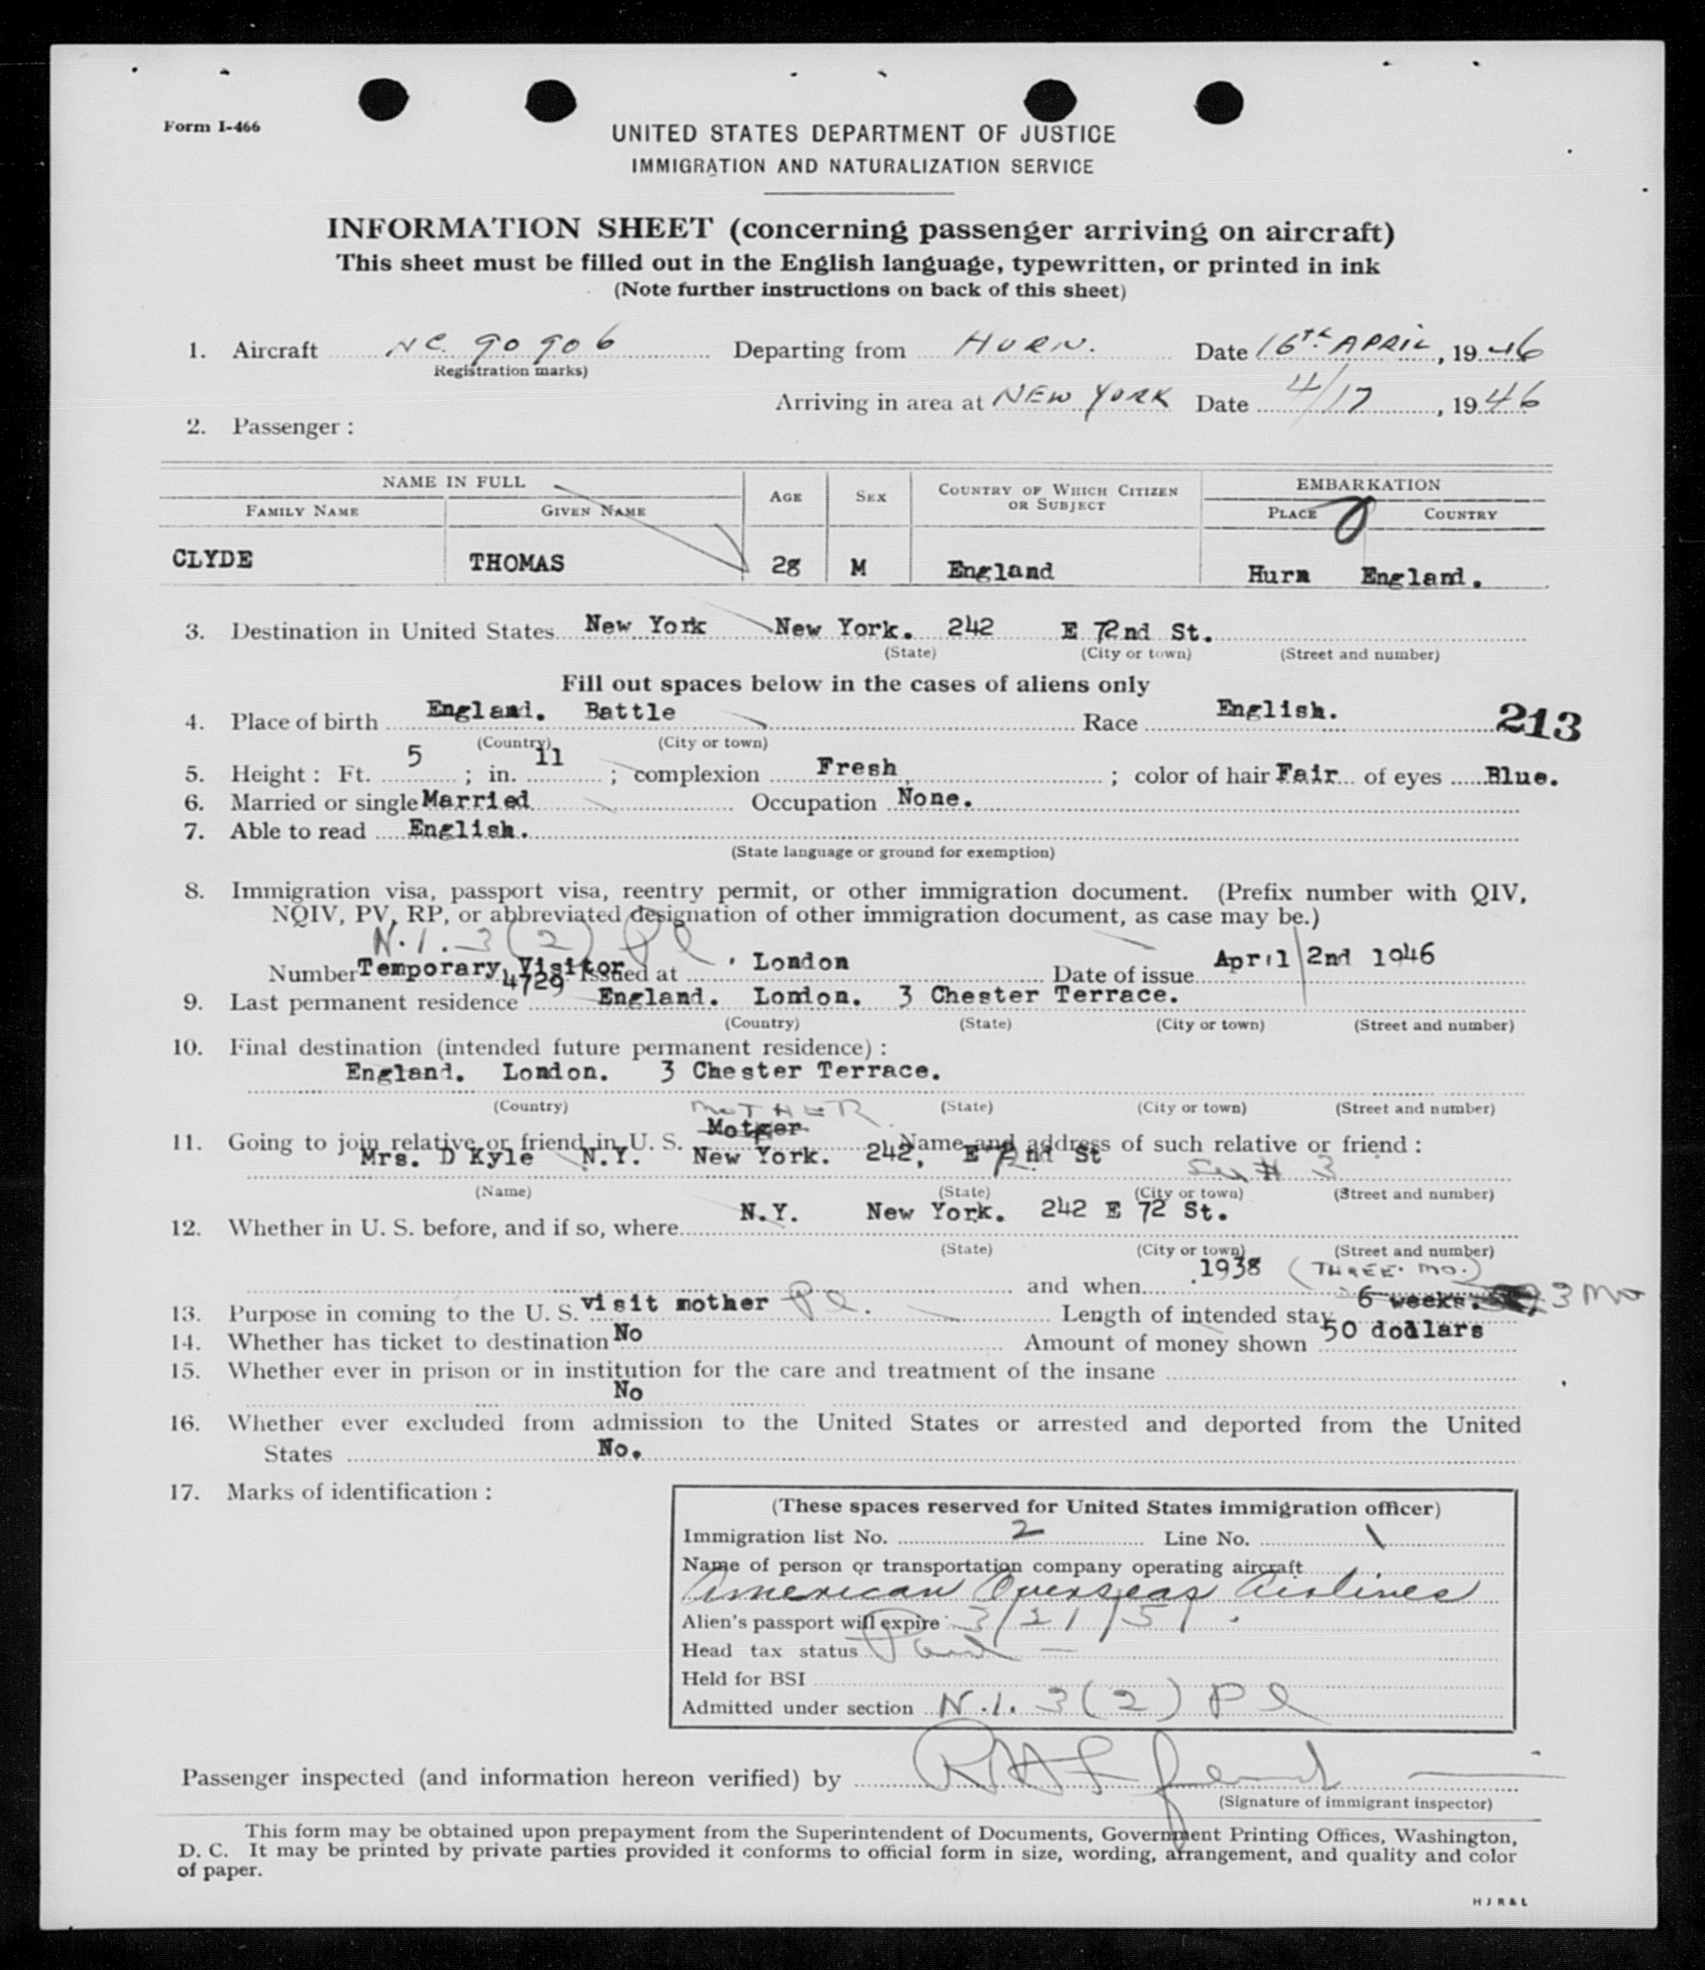 Form I-466
UNITED STATES DEPARTMENT OF JUSTICE
IMMIGRATION AND NATURALIZATION SERVICE
INFORMATION SHEET (concerning passenger arriving on aircraft)
This sheet must be filled out in the English language, typewritten, or printed in ink
(Note further instructions on back of this sheet)
1. Aircraft NC 90906 Departing from HURN. Date 16th APRIL, 1946
Registration marks)
Arriving in area at NEW YORK Date 4/17, 1946
2. Passenger :
NAME IN FULL AGE SEX COUNTRY OF WHICH CITIZEN OR SUBJECT EMBARKATION
FAMILY NAME GIVEN NAME PLACE COUNTRY
CLYDE THOMAS 28 M England Hurn England.
3. Destination in United States New York New York. 242 E 72nd St.
(State) (City or town) (Street and number)
Fill out spaces below in the cases of aliens only
4. Place of birth England. Battle Race English. 213
(Country) (City or town)
5. Height : Ft. 5 ; in. 11 ; complexion Fresh ; color of hair Fair of eyes Blue.
6. Married or single Married Occupation None.
7. Able to read English.
(State language or ground for exemption)
8. Immigration visa, passport visa, reentry permit, or other immigration document. (Prefix number with QIV,
NQIV, PV, RP, or abbreviated designation of other immigration document, as case may be.)
N.I. 3(2) Pl
Number Temporary Visitor 4729 Issued at London Date of issue April 2nd 1946
9. Last permanent residence England. London. 3 Chester Terrace.
(Country) (State) (City or town) (Street and number)
10. Final destination (intended future permanent residence) :
England. London. 3 Chester Terrace.
(Country) (State) (City or town) (Street and number)
MOTHER
11. Going to join relative or friend in U. S. Motger Name and address of such relative or friend :
Mrs. D Kyle N.Y. New York. 242, E 72nd St See # 3
(Name) (State) (City or town) (Street and number)
12. Whether in U. S. before, and if so, where N.Y. New York. 242 E 72 St.
(State) (City or town) (Street and number)
and when 1938 (THREE. MO.)
13. Purpose in coming to the U. S. visit mother Pl. Length of intended stay 6 weeks. 3 Mo
14. Whether has ticket to destination No Amount of money shown 50 dollars
15. Whether ever in prison or in institution for the care and treatment of the insane
No
16. Whether ever excluded from admission to the United States or arrested and deported from the United
States No.
17. Marks of identification :
(These spaces reserved for United States immigration officer)
Immigration list No. 2 Line No. 1
Name of person or transportation company operating aircraft
American Overseas Airlines
Alien's passport will expire 3/21/51.
Head tax status Paid —
Held for BSI
Admitted under section N.I. 3(2) Pl
Passenger inspected (and information hereon verified) by
(Signature of immigrant inspector)
This form may be obtained upon prepayment from the Superintendent of Documents, Government Printing Offices, Washington,
D. C. It may be printed by private parties provided it conforms to official form in size, wording, arrangement, and quality and color
of paper.
H J R & L